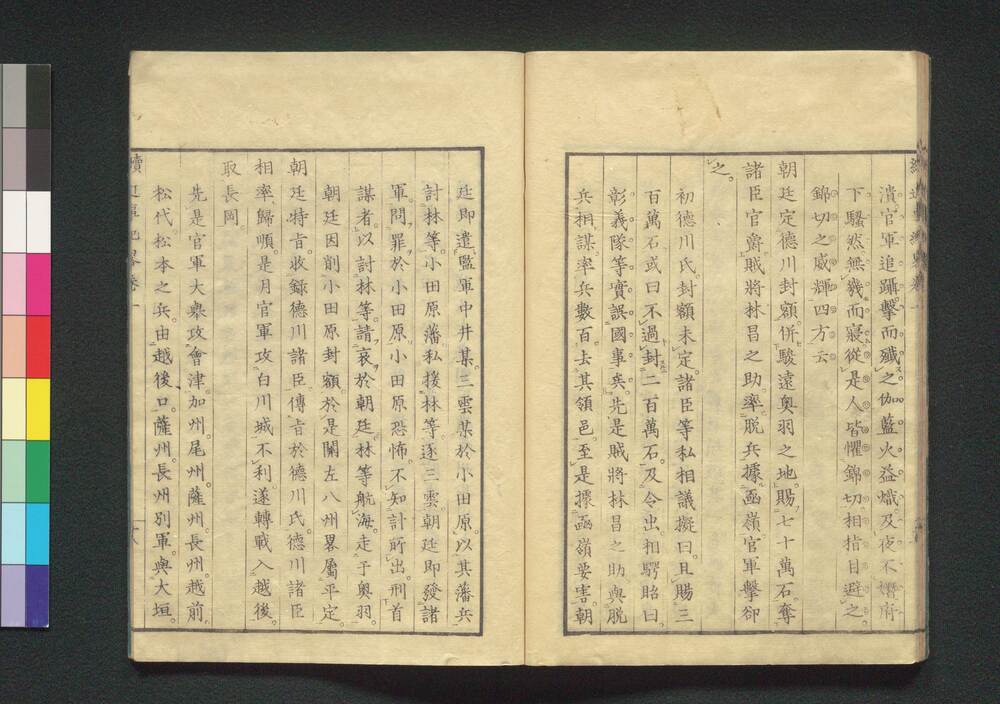 潰官軍追躡擊而殲之伽藍火益熾及夜不熸府
下騷然無幾而寢從是人皆懼錦切相指目避之
錦切之威輝四方云
朝廷定德川封額併駿遠奧羽之地賜七十萬石奪
諸臣官爵賊將林昌之助率脫兵據函嶺官軍擊卻
之。
初德川氏封額未定。諸臣等私相議擬曰。且賜三
百萬石或曰不過封二百萬石。及令出。相愕眙曰。
彰義隊等實誤國事矣。先是賊將林昌之助與脫
兵相謀。率兵數百。去其領邑。至是據函嶺要害。朝
廷即遣監軍中井某。三雲某於小田原。以其藩兵
討林等。小田原藩私援林等。逐三雲。朝廷即發諸
軍。問罪於小田原。小田原恐怖。不知計所出。刑首
謀者。以討林等。請哀於朝廷。林等航海。走于奧羽。
朝廷因削小田原封額。於是關左八州畧屬平定。
朝廷特旨。收錄德川諸臣。傳旨於德川氏。德川諸臣
相率歸順。是月官軍攻白川城不利。遂轉戰入越後。
取長岡。
先是官軍大舉攻會津。加州。尾州。薩州。長州。越前。
松代。松本之兵。由越後口。薩州。長州別軍。與大垣。